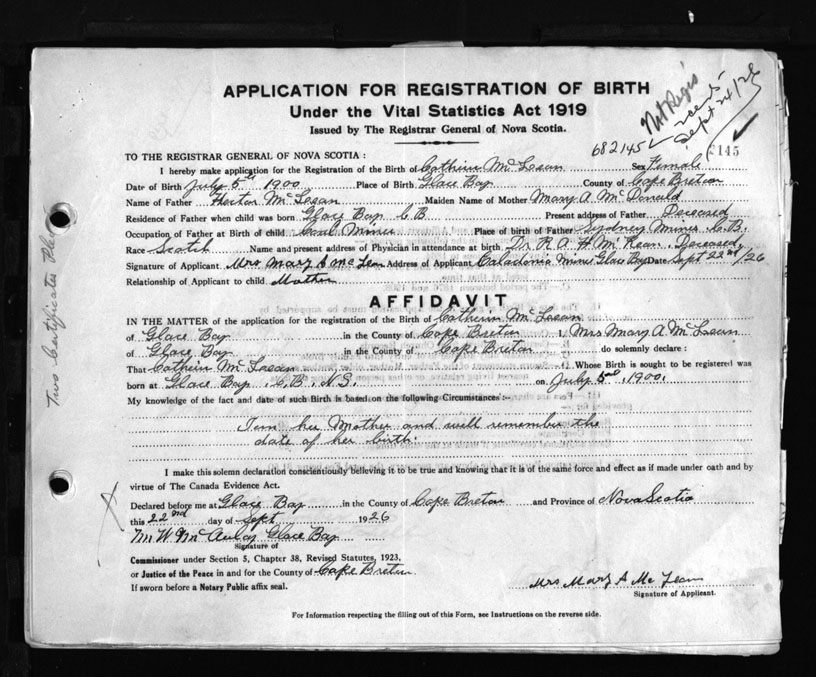 APPLICATION FOR REGISTRATION OF BIRTH
Under the Vital Statistics Act 1919
Issued by The Registrar General of Nova Scotia.
Not Regis
Sept 24/26
682145
145
TO THE REGISTRAR GENERAL OF NOVA SCOTIA :
I hereby make application for the Registration of the Birth of Catherin McLean Sex Female
Date of Birth July 5th 1900 Place of Birth Glace Bay County of Cape Breton
Name of Father Hector McLean Maiden Name of Mother Mary A McDonald
Residence of Father when child was born Glace Bay C B Present address of Father Deceased
Occupation of Father at Birth of child Coal Miner Place of birth of Father Sydney Mines C.B.
Race Scotch Name and present address of Physician in attendance at birth Dr. R A H McKean. Deceased
Signature of Applicant Mrs Mary A McLean Address of Applicant Caledonia mines Glace Bay Date Sept 22nd/26
Relationship of Applicant to child Mother
AFFIDAVIT
IN THE MATTER of the application for the registration of the Birth of Catherin McLean
of Glace Bay in the County of Cape Breton I, Mrs Mary A McLean
of Glace Bay in the County of Cape Breton do solemnly declare :
That Catherin McLean Whose Birth is sought to be registered was
born at Glace Bay, C.B. N.S. on July 5th, 1900.
My knowledge of the fact and date of such Birth is based on the following Circumstances:-
I am her Mother and will remember the
date of her birth.
I make this solemn declaration conscientiously believing it to be true and knowing that it is of the same force and effect as if made under oath and by
virtue of The Canada Evidence Act.
Declared before me at Glace Bay in the County of Cape Breton and Province of Nova Scotia
this 22nd day of Sept 1926
M W McAulay Glace Bay
Signature of
Commissioner under Section 5, Chapter 38, Revised Statutes, 1923,
or Justice of the Peace in and for the County of Cape Breton
If sworn before a Notary Public affix seal.
Mrs Mary A McLean
Signature of Applicant.
For Information respecting the filling out of this Form, see Instructions on the reverse side.
Two Certificates